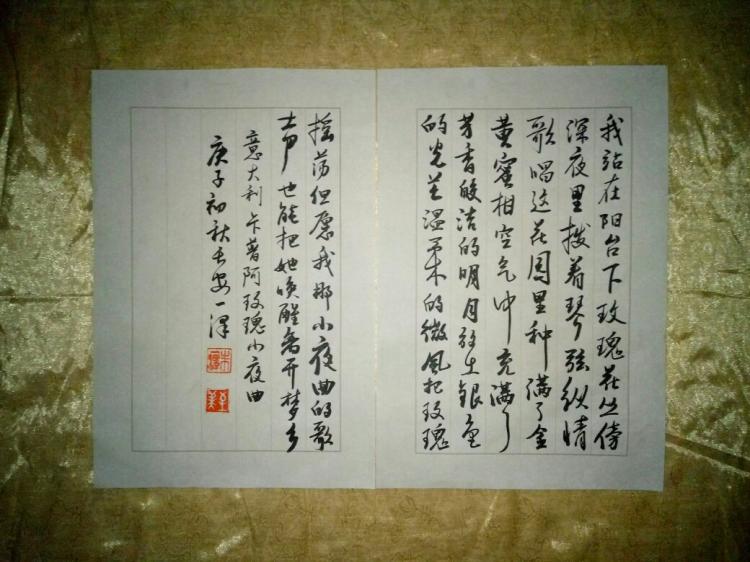 我站在阳台下玫瑰花丛傍
深夜里拨着琴弦纵情
歌唱这花园里种满了金
黄蜜柑空气中充满了
芳香皎洁的明月放上银色
的光芒温柔的微风把玫瑰
摇荡但愿我那小夜曲的歌
声也能把她唤醒离开梦乡
意大利卡普阿玫瑰小夜曲
庚子初秋长安一泽